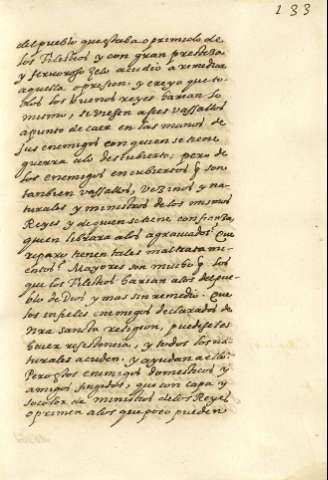 133
del pueblo que estaba oprimido de
los Filisteos y con gran presteza
y fervoroso zelo acudio a remediar
aquella opresion: y creyo que to-
dos los buenos reyes harian lo
mismo, si viesen a sus vassallos
a punto de caer en las manos de
sus enemigos con quien se tiene
guerra a lo descubierto; pero de
los enemigos encubiertos q son
tambien vassallos, vezinos y na-
turales y ministros de los mismos
Reyes y de quien se tiene confianza,
quien librara a los agraviados? Que
reparo tienen tales maltratami-
entos? Mayores son mucho q los
que los Filisteos harian a los del pue-
blo de Dios y mas sin remedio. Que
los infieles enemigos declarados de
nra santa religion, puedeseles
hacer resistencia, y todos los na-
turales acuden, y ayudan a ello:
Pero estos enemigos domesticos y
amigos fingidos, que con capa y
so color de ministros de los Reyes,
oprimen a los que poco pueden